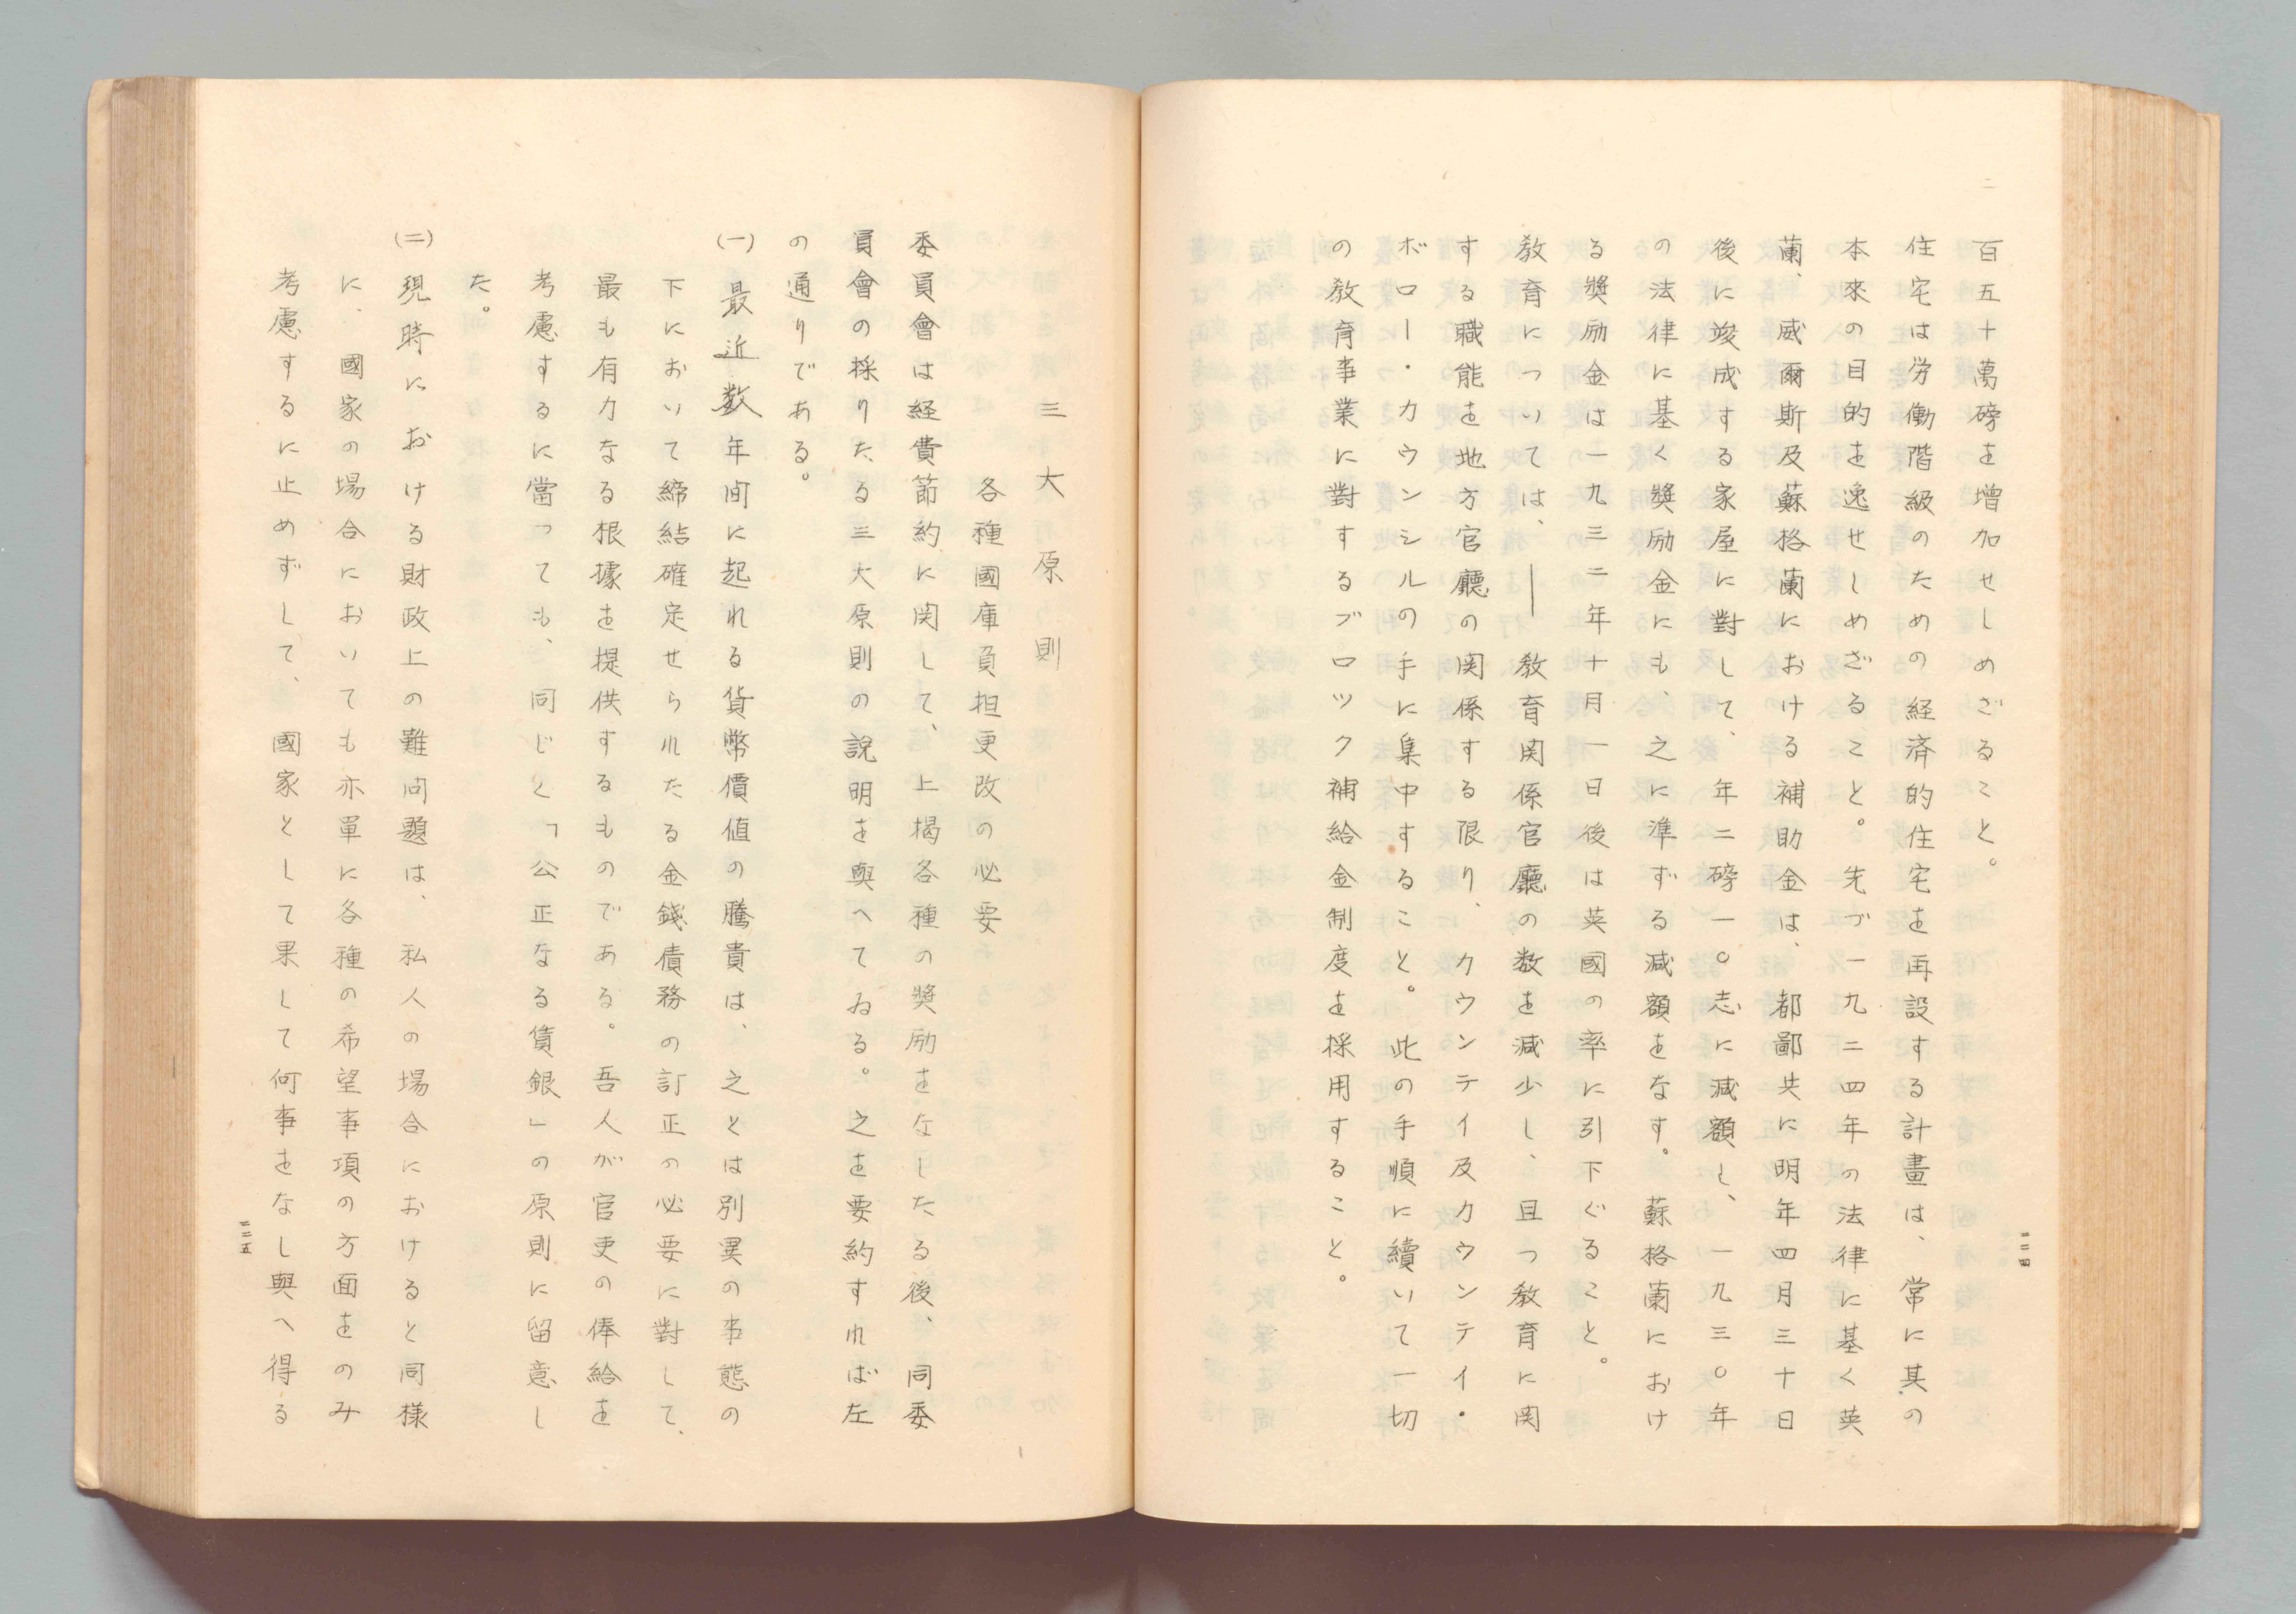 百五十萬磅を増加せしめざること。
住宅は労働階級のための経済的住宅を再設する計畫は、常に其の
本來の目的を逸せしめざること。先づ一九二四年の法律に基く英
蘭、威爾斯及蘇格蘭における補助金は、都鄙共に明年四月三十日
後に竣成する家屋に對して、年二磅一〇志に減額し、一九三〇年
の法律に基く奬励金にも、之に準ずる減額をなす。蘇格蘭におけ
る奬励金は一九三二年十月一日後は英國の率に引下ぐること。
教育については、―― 教育関係官廳の数を減少し、且つ教育に関
する職能を地方官廳の関係する限り、カウンテイ及カウンテイ・
ボロー・カウンシルの手に集中すること。此の手順に續いて一切
の教育事業に對するブロック補給金制度を採用すること。
二二四
三大原則
各種國庫負担更改の必要
委員會は経費節約に関して、上掲各種の奬励をなしたる後、同委
員會の採りたる三大原則の説明を與へてゐる。之を要約すれば左
の通りである。
(一)最近数年间に起れる貨幣價値の騰貴は、之とは別異の事態の
下において締結確定せられたる金錢債務の訂正の必要に對して、
最も有力なる根據を提供するものである。吾人が官吏の俸給を
考慮するに當っても、同じと「公正なる賃銀」の原則に留意し
た。
(二)現時における財政上の難问題は、私人の場合におけると同様
に、國家の場合においても亦單に各種の希望事項の方面をのみ
考慮するに止めずして、國家として果して何事をなし與へ得る
二二五